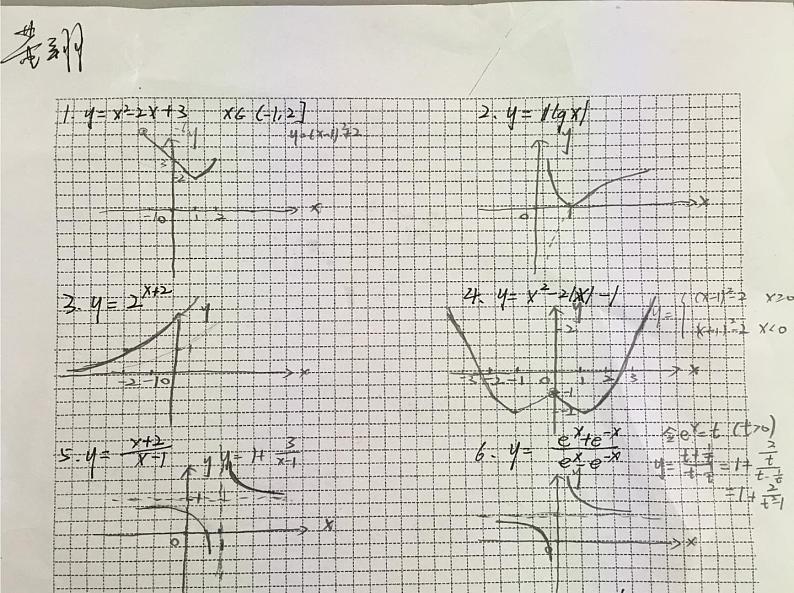 1. y=x²-2x+3 x∈(-1,2]
y=(x-1)²+2
y
3
2
-1 0 1 2 x
2. y=|lgx|
y
0 1 x
3. y=2^{x+2}
y
1
-2 -1 0 x
4. y=x²-2|x|-1
y={(x-1)²-2 x≥0
(x+1)²-2 x<0
y
2
-3 -2 -1 0 1 2 3 x
-1
-2
5. y=\frac{x+2}{x-1} y=1+\frac{3}{x-1}
y
1
0 x
6. y=\frac{e^x+e^{-x}}{e^x-e^{-x}}
令e^x=t (t>0)
y=\frac{t+\frac{1}{t}}{t-\frac{1}{t}}=1+\frac{\frac{2}{t}}{t-\frac{1}{t}}
=1+\frac{2}{t²-1}
y
0 x